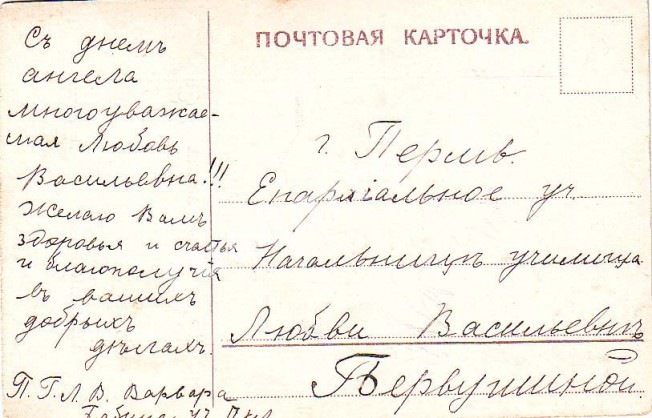 Съ днемъ
ангела
многоуважае-
мая Любовь
Васильевна!!!
Желаю Вамъ
здоровья и счастья
и благополучія
въ вашихъ
добрыхъ
дѣлахъ.
П. Г. Л. В. Варвара
ПОЧТОВАЯ КАРТОЧКА.
г. Пермь.
Епархіальное уч.
Начальницѣ училища
Любви Васильевнѣ
Первушиной